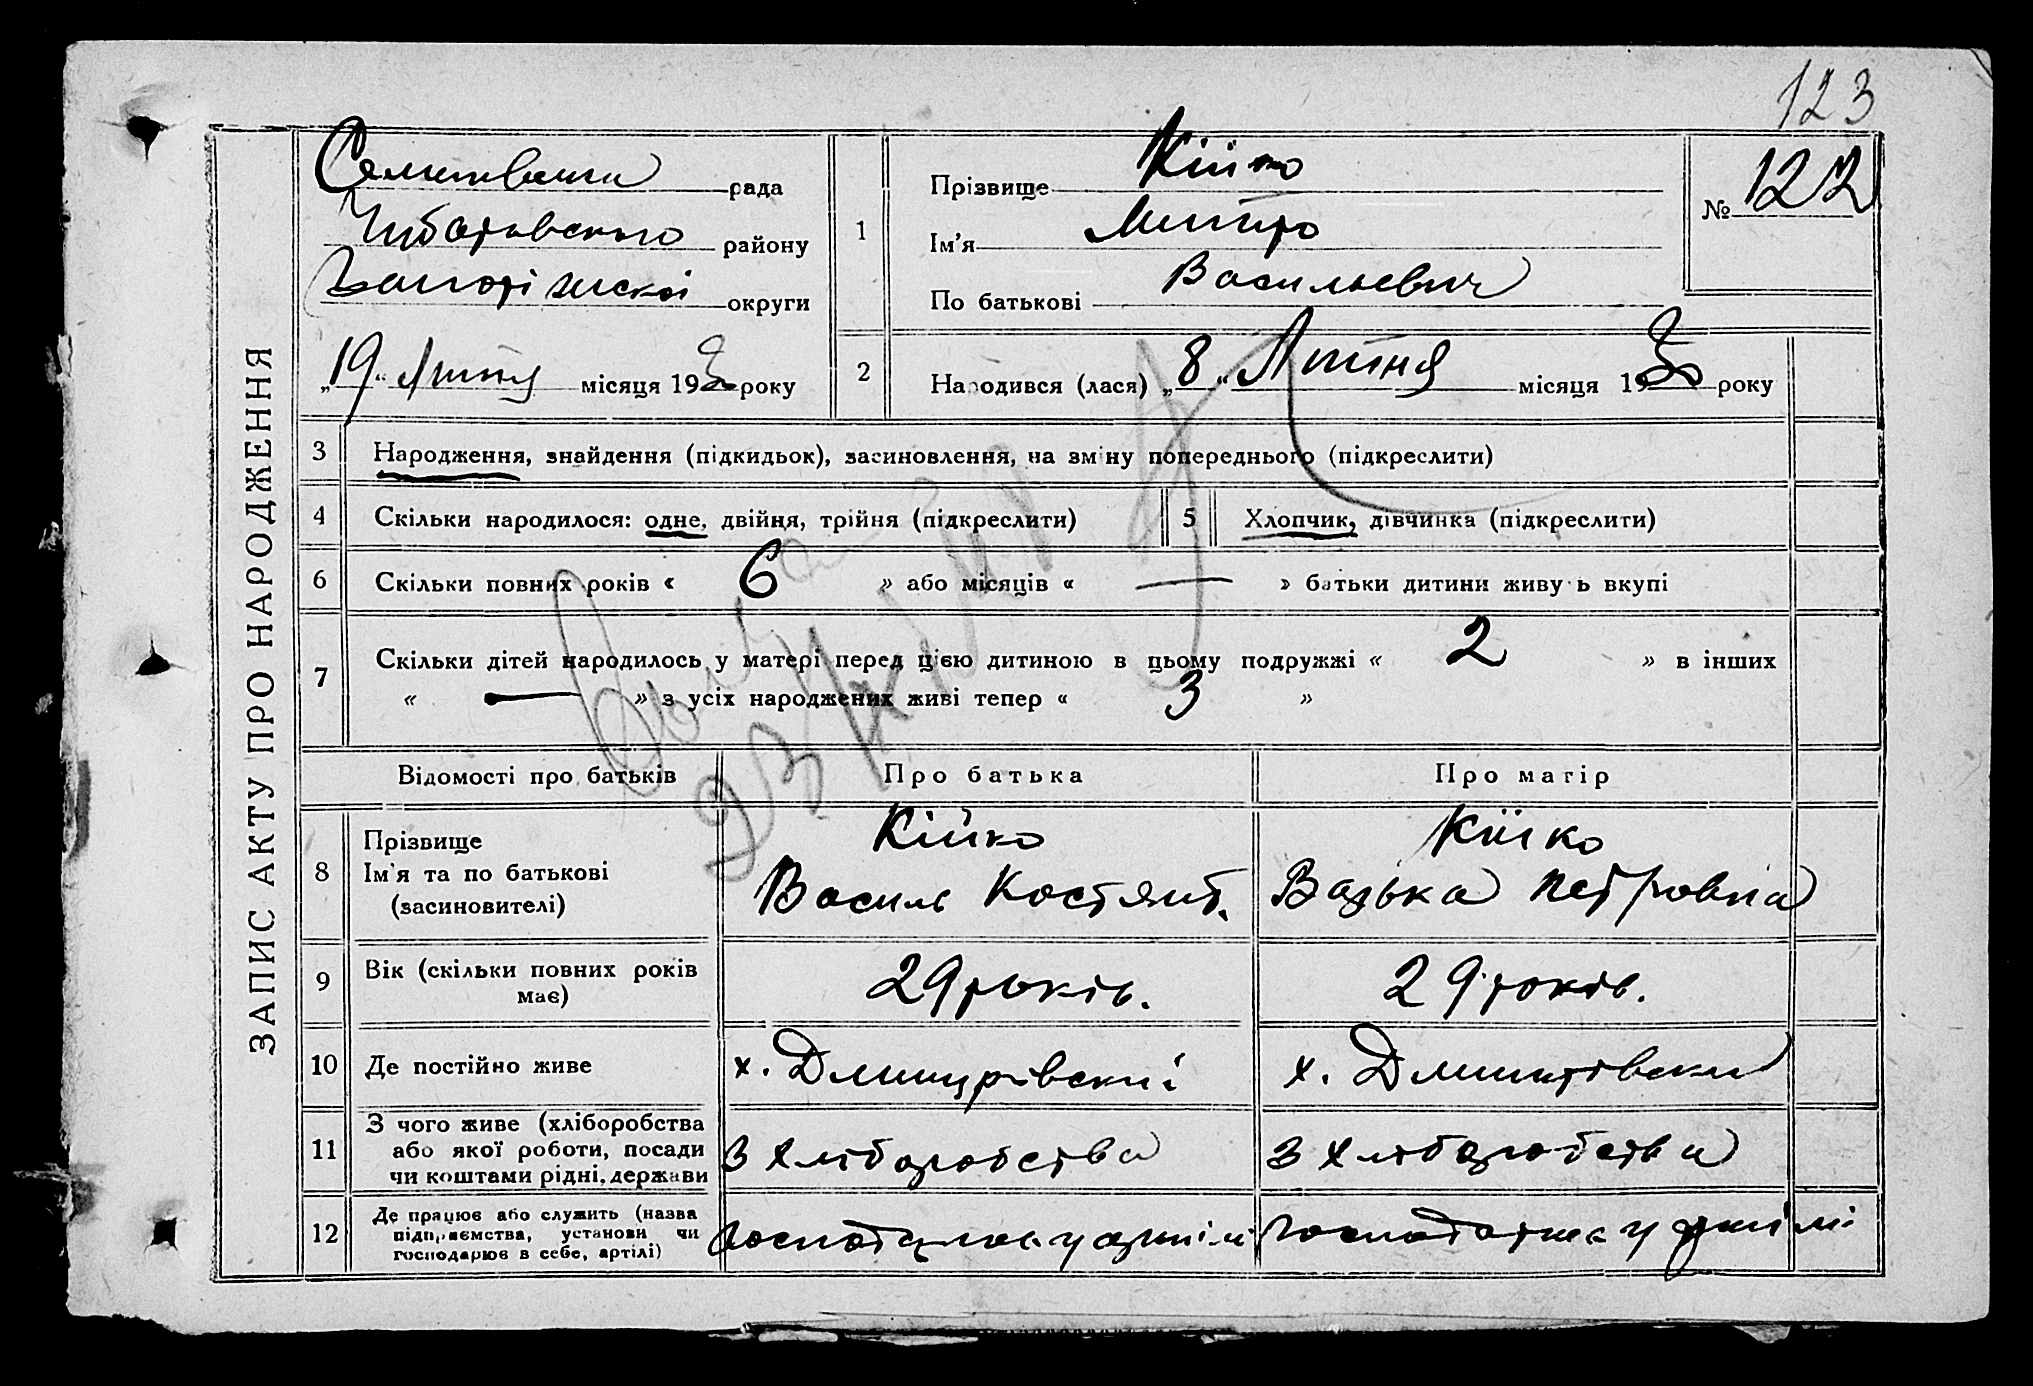 123
ЗАПИС АКТУ ПРО НАРОДЖЕННЯ
рада
району
округи
„19“ Липня місяця 193 року
1
Прізвище Кійко
Ім'я Митро
По батькові Васильевич
№ 122
2
Народився (лася) „8“ Липня місяця 193 року
3 Народження, знайдення (підкидьок), засиновлення, на зміну попереднього (підкреслити)
4 Скільки народилося: одне, двійня, трійня (підкреслити)
5 Хлопчик, дівчинка (підкреслити)
6 Скільки повних років « 6 » або місяців « — » батьки дитини живуть вкупі
7 Скільки дітей народилось у матері перед цією дитиною в цьому подружжі « 2 » в інших
« — » з усіх народжених живі тепер « 3 »
Відомості про батьків Про батька Про матір
8 Прізвище
Ім'я та по батькові
(засиновителі)
Кійко
Василь Костянт.
Кійко
Петровна
9 Вік (скільки повних років
має)
29 років.
29 років.
10 Де постійно живе
х. Дмитрівский
х.
11 З чого живе (хліборобства
або якої роботи, посади
чи коштами рідні, держави
З хліборобства
З хліборобства
12 Де працює або служить (назва
підприємства, установи чи
господарює в себе, артілі)